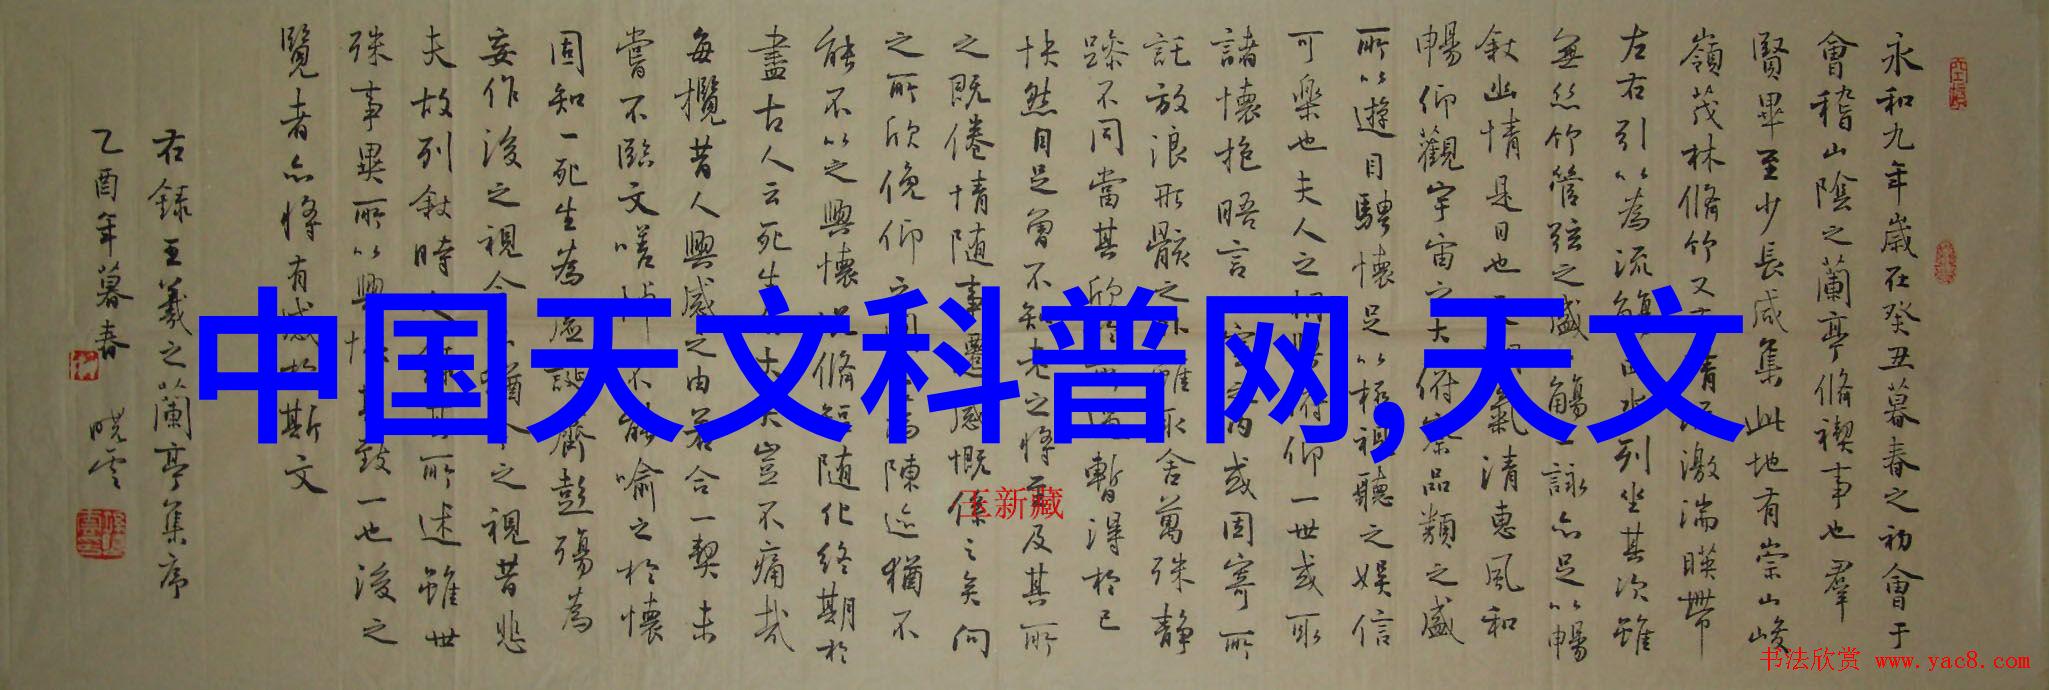 永和九年歲在癸丑暮春之初會于
會稽山陰之蘭亭脩禊事也羣
賢畢至少長咸集此地有崇山峻
嶺茂林脩竹又清流激湍暎帶
左右引以為流觴曲水列坐其次雖
無絲竹管弦之盛一觴一詠亦足以暢
敘幽情是日也天朗氣清惠風和
暢仰觀宇宙之大俯察品類之盛
所以遊目騁懷足以極視聽之娛信
可樂也夫人之相與俯仰一世或取
諸懷抱晤言一室之內或因寄所
託放浪形骸之外雖取舍萬殊靜
躁不同當其欣於所遇暫得於己
快然自足曾不知老之將至及其所
之既倦情随事遷感慨係之矣向
之所欣俛仰之間以為陳迹猶不
能不以之興懷況脩短随化終期於
盡古人云死生亦大矣豈不痛哉
每攬昔人興感之由若合一契未
嘗不臨文嗟悼不能喻之於懷
固知一死生為虛誕齊彭殤為
妄作後之視今亦猶今之視昔悲
夫故列敘時人錄其所述雖世
殊事異所以興懷其致一也後之
覽者亦將有感於斯文
右錄王羲之蘭亭集序
乙酉年暮春 曉雲
中国天文科普网,天文
王新藏
书法欣赏 www.yac8.com